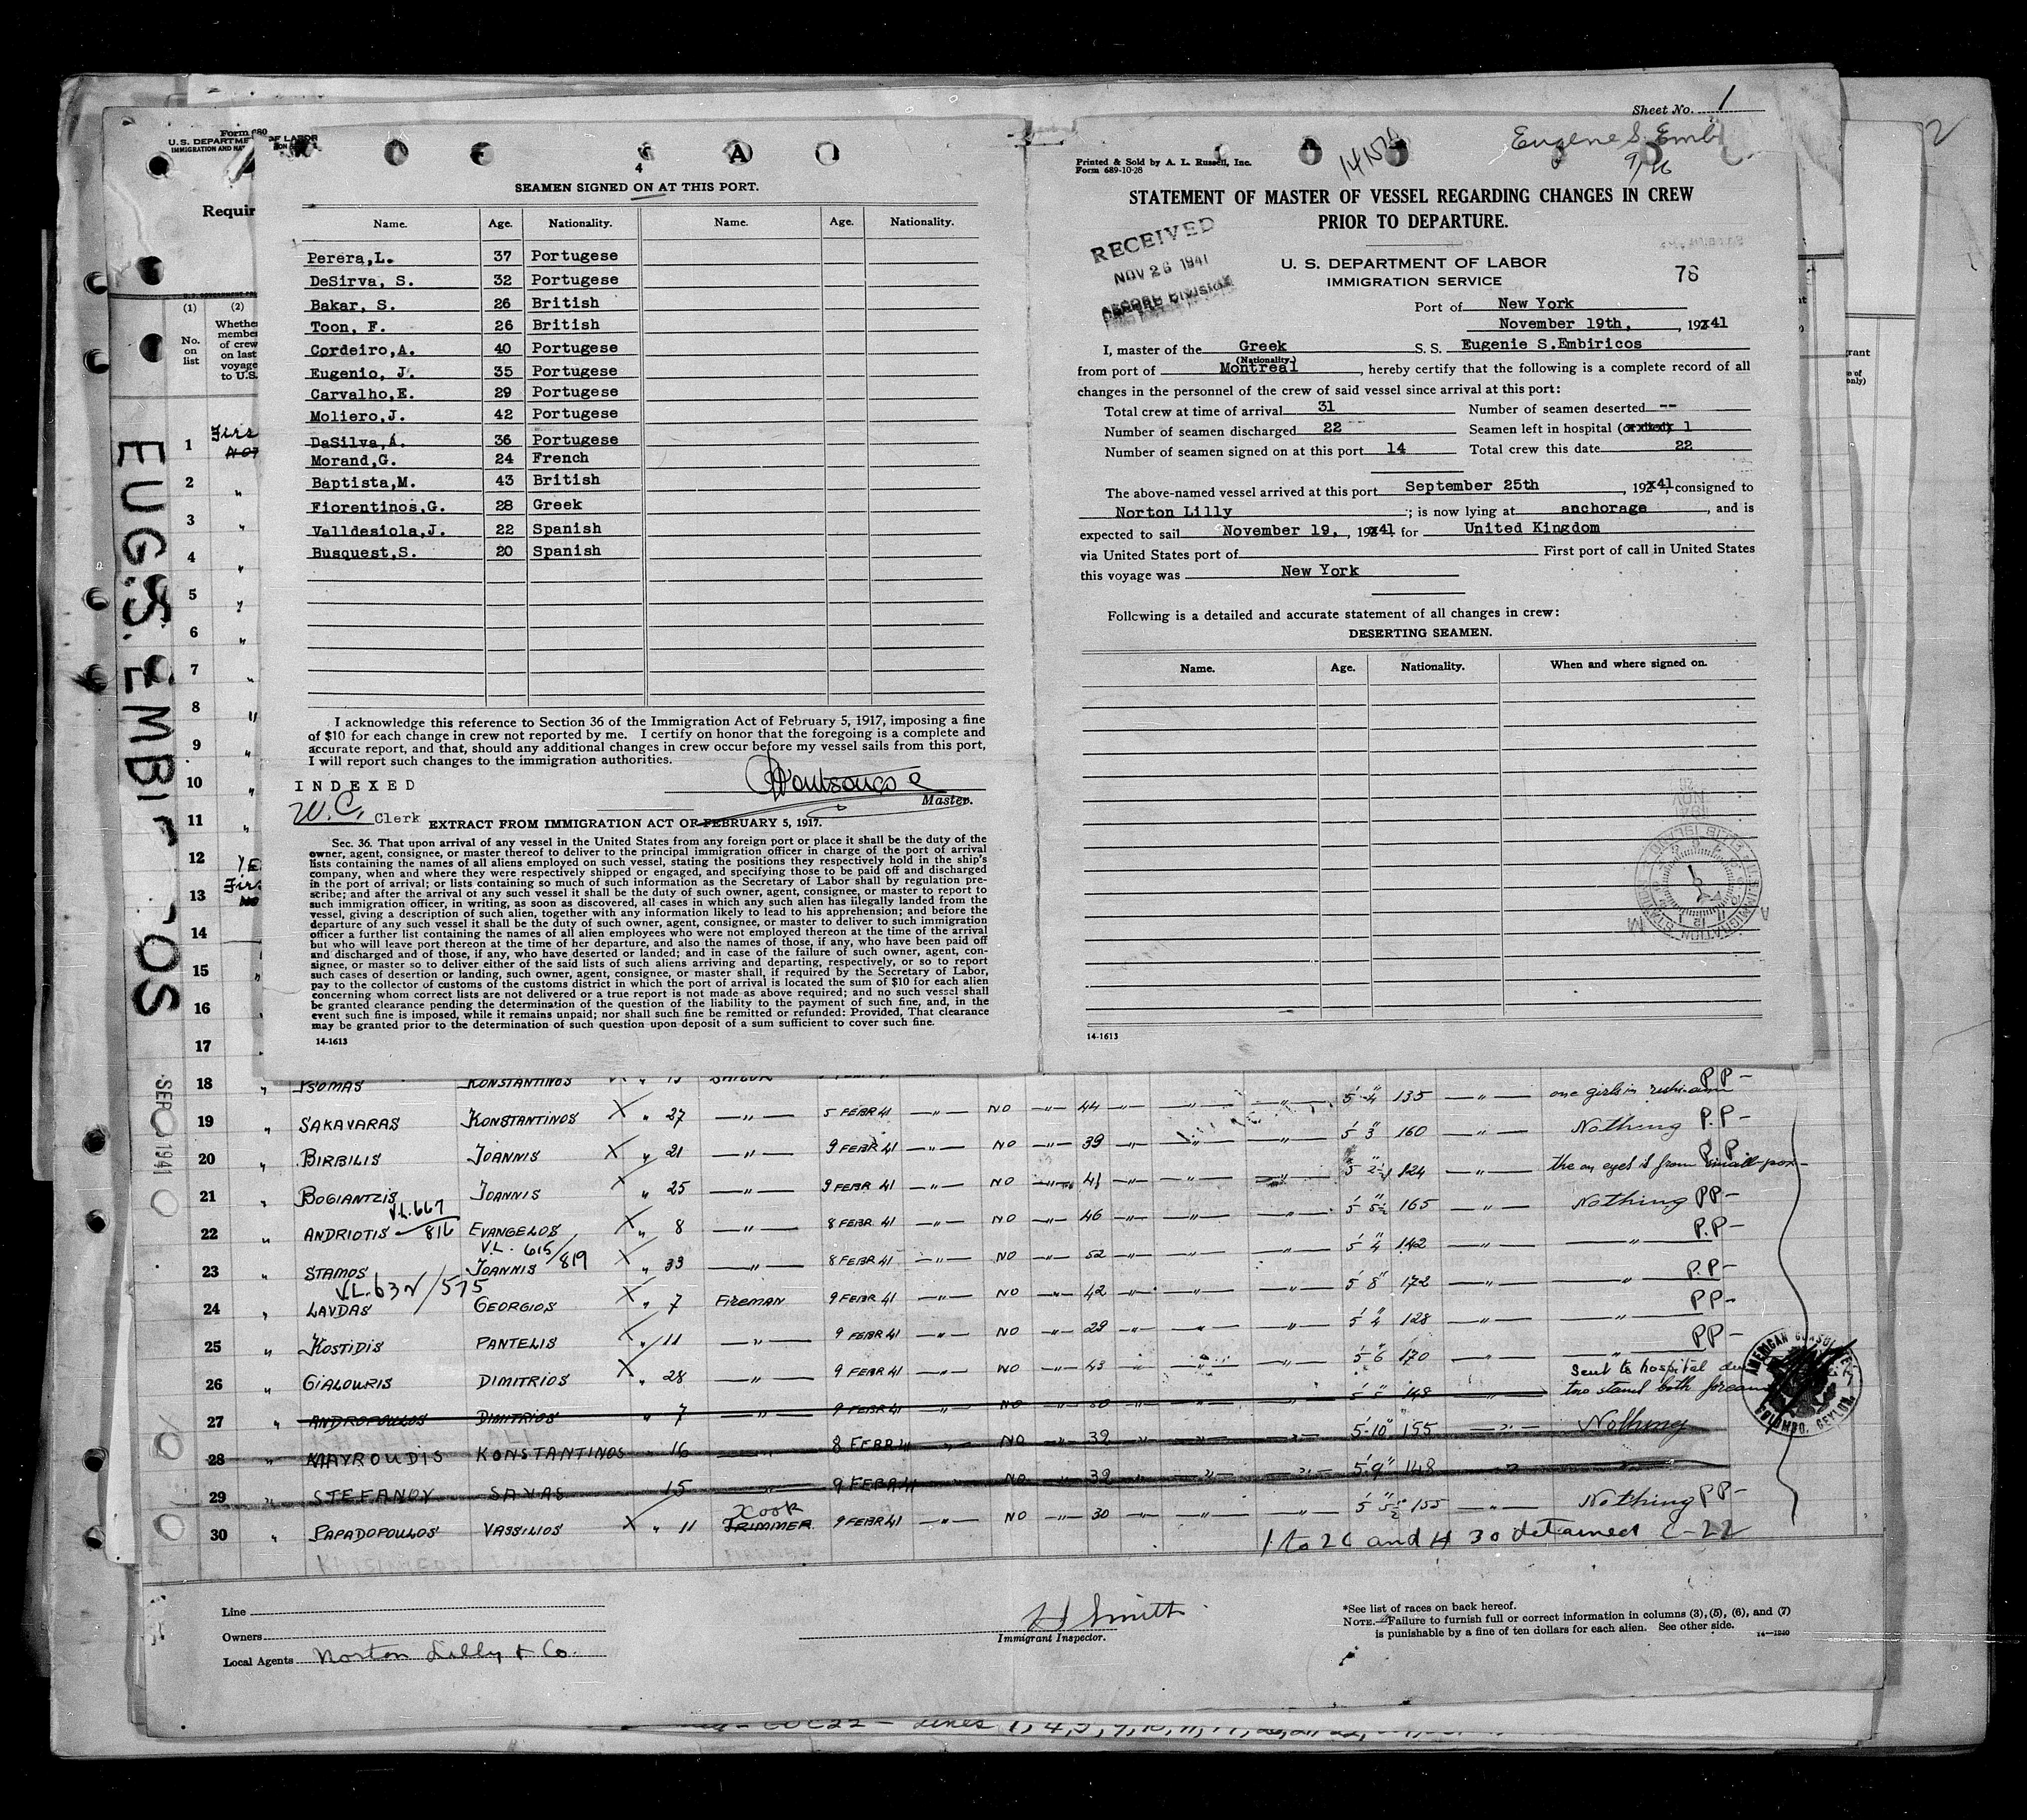 Sheet No. 1
2
Form 680
U. S. DEPARTME
OF LABOR
IMMIGRATION AND NAT
Requir
(1) (2)
No. on list
Whether member of crew on last voyage to U.S.
EUG. S. EMBI
OS
4
SEAMEN SIGNED ON AT THIS PORT.
Name. Age. Nationality. Name. Age. Nationality.
Perera, L. 37 Portugese
DeSirva, S. 32 Portugese
Bakar, S. 26 British
Toon, F. 26 British
Cordeiro,A. 40 Portugese
Eugenio, J. 35 Portugese
Carvalho,E. 29 Portugese
Moliero,J. 42 Portugese
DaSilva,A. 36 Portugese
Morand,G. 24 French
Baptista,M. 43 British
Fiorentinos,G. 28 Greek
Valldesiola,J. 22 Spanish
Busquest,S. 20 Spanish
I acknowledge this reference to Section 36 of the Immigration Act of February 5, 1917, imposing a fine
of $10 for each change in crew not reported by me. I certify on honor that the foregoing is a complete and
accurate report, and that, should any additional changes in crew occur before my vessel sails from this port,
I will report such changes to the immigration authorities.
INDEXED
W.C. Clerk
Master.
EXTRACT FROM IMMIGRATION ACT OF FEBRUARY 5, 1917.
Sec. 36. That upon arrival of any vessel in the United States from any foreign port or place it shall be the duty of the
owner, agent, consignee, or master thereof to deliver to the principal immigration officer in charge of the port of arrival
lists containing the names of all aliens employed on such vessel, stating the positions they respectively hold in the ship's
company, when and where they were respectively shipped or engaged, and specifying those to be paid off and discharged
in the port of arrival; or lists containing so much of such information as the Secretary of Labor shall by regulation pre-
scribe; and after the arrival of any such vessel it shall be the duty of such owner, agent, consignee, or master to report to
such immigration officer, in writing, as soon as discovered, all cases in which any such alien has illegally landed from the
vessel, giving a description of such alien, together with any information likely to lead to his apprehension; and before the
departure of any such vessel it shall be the duty of such owner, agent, consignee, or master to deliver to such immigration
officer a further list containing the names of all alien employees who were not employed thereon at the time of the arrival
but who will leave port thereon at the time of her departure, and also the names of those, if any, who have been paid off
and discharged and of those, if any, who have deserted or landed; and in case of the failure of such owner, agent, con-
signee, or master so to deliver either of the said lists of such aliens arriving and departing, respectively, or so to report
such cases of desertion or landing, such owner, agent, consignee, or master shall, if required by the Secretary of Labor,
pay to the collector of customs of the customs district in which the port of arrival is located the sum of $10 for each alien
concerning whom correct lists are not delivered or a true report is not made as above required; and no such vessel shall
be granted clearance pending the determination of the question of the liability to the payment of such fine, and, in the
event such fine is imposed, while it remains unpaid; nor shall such fine be remitted or refunded: Provided, That clearance
may be granted prior to the determination of such question upon deposit of a sum sufficient to cover such fine.
14-1613
Eugene S. Emb
9/26
Printed & Sold by A. L. Russell, Inc.
Form 689-10-28
STATEMENT OF MASTER OF VESSEL REGARDING CHANGES IN CREW
PRIOR TO DEPARTURE.
RECEIVED
NOV 26 1941
RECORD DIVISION
U. S. DEPARTMENT OF LABOR
IMMIGRATION SERVICE
76
Port of New York
November 19th, , 192x41
I, master of the Greek S. S. Eugenie S.Embiricos
(Nationality.)
from port of Montreal, hereby certify that the following is a complete record of all
changes in the personnel of the crew of said vessel since arrival at this port:
Total crew at time of arrival 31 Number of seamen deserted --
Number of seamen discharged 22 Seamen left in hospital (or died) 1
Number of seamen signed on at this port 14 Total crew this date 22
The above-named vessel arrived at this port September 25th, 192x41, consigned to
Norton Lilly; is now lying at anchorage, and is
expected to sail November 19, , 192x41 for United Kingdom
via United States port of First port of call in United States
this voyage was New York
Following is a detailed and accurate statement of all changes in crew:
DESERTING SEAMEN.
Name. Age. Nationality. When and where signed on.
14-1613
1 Firs
2 "
3 "
4 "
5 "
6 "
7 "
8 "
9 "
10 "
11 "
12 YE
13 Firs
14
15 "
16
17
SEP 1941
18 " PSOMAS KONSTANTINOS " 15 SAILOR 5' 4" 135 —"— P.P-
19 " SAKAVARAS KONSTANTINOS X " 27 —"— 5 FEBR 41 —"— NO —"— 44 —"— 5' 3" 160 —"— Nothing P.P-
20 " BIRBILIS JOANNIS X " 21 —"— 9 FEBR 41 —"— NO —"— 39 —"— 124 —"— P.P
21 " BOGIANTZIS JOANNIS X " 25 —"— 9 FEBR 41 —"— NO —"— 41 —"— 5' 5½" 165 —"— Nothing PP-
V.L. 667
22 " ANDRIOTIS 816 EVANGELOS X " 8 —"— 8 FEBR 41 —"— NO —"— 46 —"— 5' 4" 142 —"— —"— P.P-
V.L. 615/819
23 " STAMOS JOANNIS X " 33 —"— 8 FEBR 41 —"— NO —"— 52 —"— 5' 8" 172 —"— —"— P.P-
V.L. 632/575
24 " LAVDAS GEORGIOS X " 7 FIREMAN 9 FEBR 41 —"— NO —"— 42 —"— 5' 4" 128 —"— —"— PP-
25 " KOSTIDIS PANTELIS X " 11 —"— 9 FEBR 41 —"— NO —"— 29 —"— 5' 6" 170 —"— —"— PP-
26 " GIALOURIS DIMITRIOS X " 28 —"— 9 FEBR 41 —"— NO —"— 43 —"— 5' 5" 148 —"— Sent to hospital
27 " ANDROPOULOS DIMITRIOS " 7 —"— 9 FEBR 41 —"— NO —"— 30 —"— 5' 10" 155 —"— Nothing
28 " MAYROUDIS KONSTANTINOS " 16 —"— 8 FEBR 41 " NO —"— 32 " 5' 9" 148 "
29 " STEFANOY SAVAS 15 " 9 FEBR 41 " NO —"— 32 " 5' 5½" 155 —"— Nothing PP-
Cook
30 " PAPADOPOULOS VASSILIOS X " 11 TRIMMER 9 FEBR 41 —"— NO —"— 30 —"—
1 to 26 and # 30 detained C-22
AMERICAN CONSULATE
COLOMBO, CEYLON.
Line
Owners
Local Agents Norton Lilly & Co.
H Smith
Immigrant Inspector.
*See list of races on back hereof.
NOTE.—Failure to furnish full or correct information in columns (3), (5), (6), and (7)
is punishable by a fine of ten dollars for each alien. See other side.
14—1240